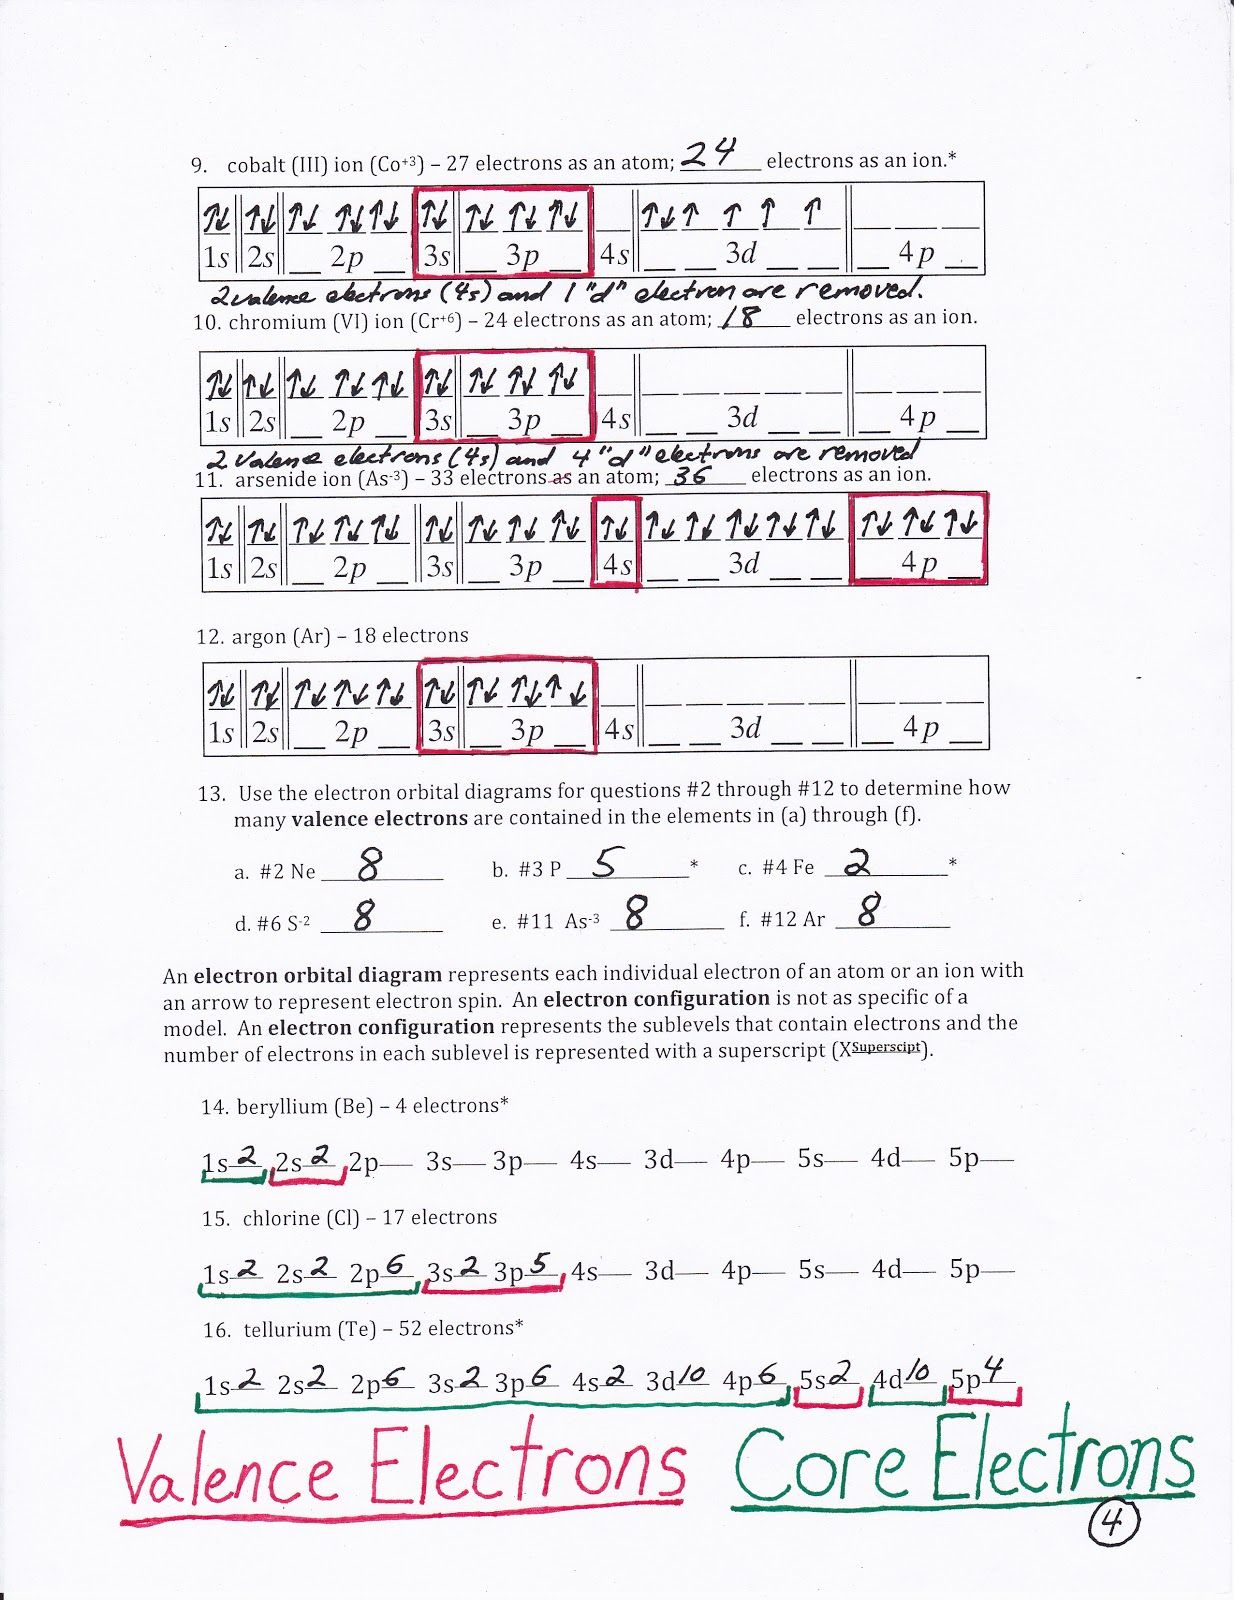 9. cobalt (III) ion (Co+3) – 27 electrons as an atom; 24 electrons as an ion.*
↑↓ ↑↓ ↑↓ ↑↓ ↑↓ ↑↓ ↑↓ ↑↓ ↑↓ ↑↓ ↑ ↑ ↑ ↑
1s 2s 2p 3s 3p 4s 3d 4p
2 valence electrons (4s) and 1 "d" electron are removed.
10. chromium (VI) ion (Cr+6) – 24 electrons as an atom; 18 electrons as an ion.
↑↓ ↑↓ ↑↓ ↑↓ ↑↓ ↑↓ ↑↓ ↑↓ ↑↓
1s 2s 2p 3s 3p 4s 3d 4p
2 valence electrons (4s) and 4 "d" electrons are removed
11. arsenide ion (As-3) – 33 electrons as an atom; 36 electrons as an ion.
↑↓ ↑↓ ↑↓ ↑↓ ↑↓ ↑↓ ↑↓ ↑↓ ↑↓ ↑↓ ↑↓ ↑↓ ↑↓ ↑↓ ↑↓ ↑↓ ↑↓ ↑↓
1s 2s 2p 3s 3p 4s 3d 4p
12. argon (Ar) – 18 electrons
↑↓ ↑↓ ↑↓ ↑↓ ↑↓ ↑↓ ↑↓ ↑↓ ↑↓
1s 2s 2p 3s 3p 4s 3d 4p
13. Use the electron orbital diagrams for questions #2 through #12 to determine how
many valence electrons are contained in the elements in (a) through (f).
a. #2 Ne 8 b. #3 P 5 * c. #4 Fe 2 *
d. #6 S-2 8 e. #11 As-3 8 f. #12 Ar 8
An electron orbital diagram represents each individual electron of an atom or an ion with
an arrow to represent electron spin. An electron configuration is not as specific of a
model. An electron configuration represents the sublevels that contain electrons and the
number of electrons in each sublevel is represented with a superscript (XSuperscipt).
14. beryllium (Be) – 4 electrons*
1s 2 2s 2 2p 3s 3p 4s 3d 4p 5s 4d 5p
15. chlorine (Cl) – 17 electrons
1s 2 2s 2 2p 6 3s 2 3p 5 4s 3d 4p 5s 4d 5p
16. tellurium (Te) – 52 electrons*
1s 2 2s 2 2p 6 3s 2 3p 6 4s 2 3d 10 4p 6 5s 2 4d 10 5p 4
Valence Electrons Core Electrons
4